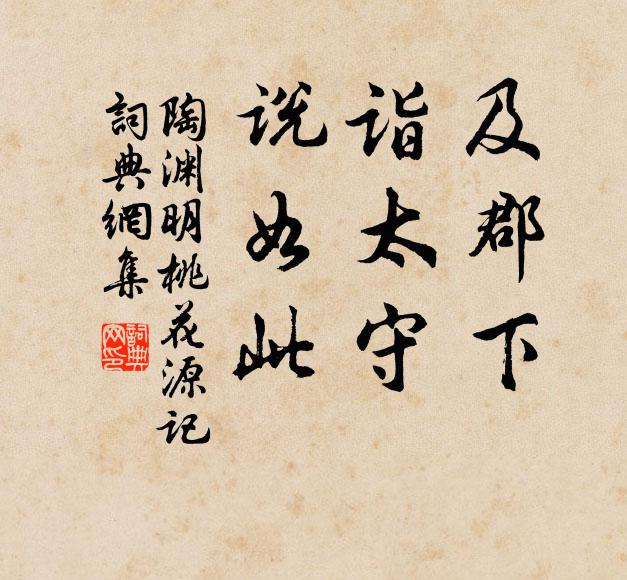 及郡下
诣太守
说如此
陶渊明桃花源记
词典网集
词典
网印